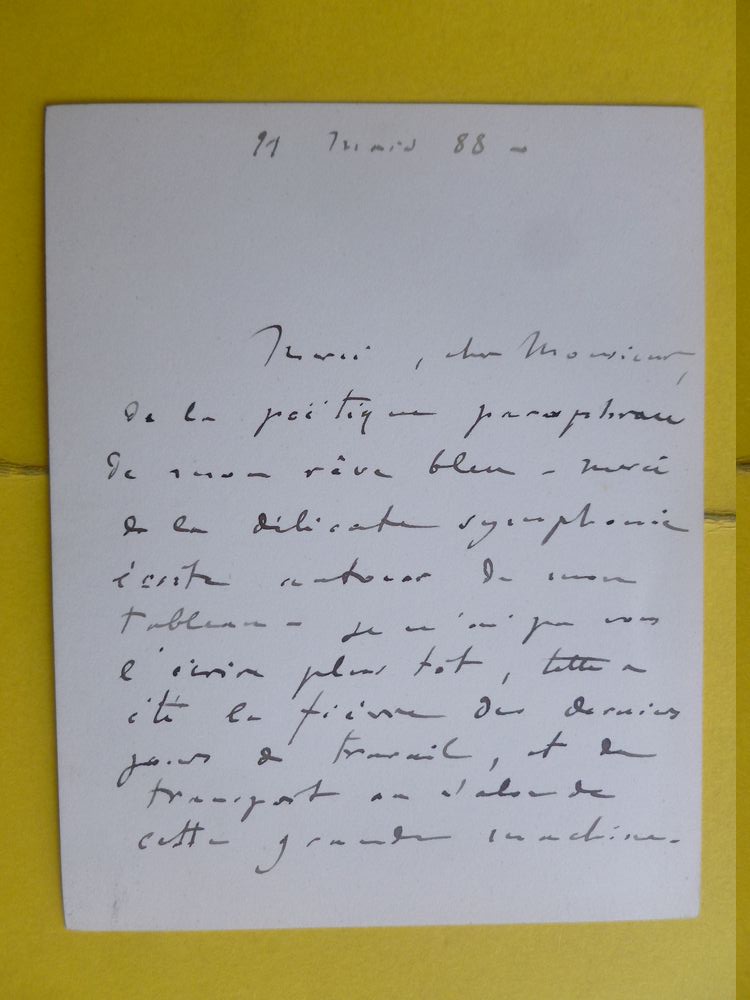 21 mars 88 -
Merci, cher Monsieur,
de la poëtique paraphrase
de mon rêve bleu - merci
de la délicate symphonie
écrite autour de mon
tableau - je n'ai pu vous
l'écrire plus tôt, telle a
été la fièvre des derniers
jours de travail, et du
transport au
cette grande machine.